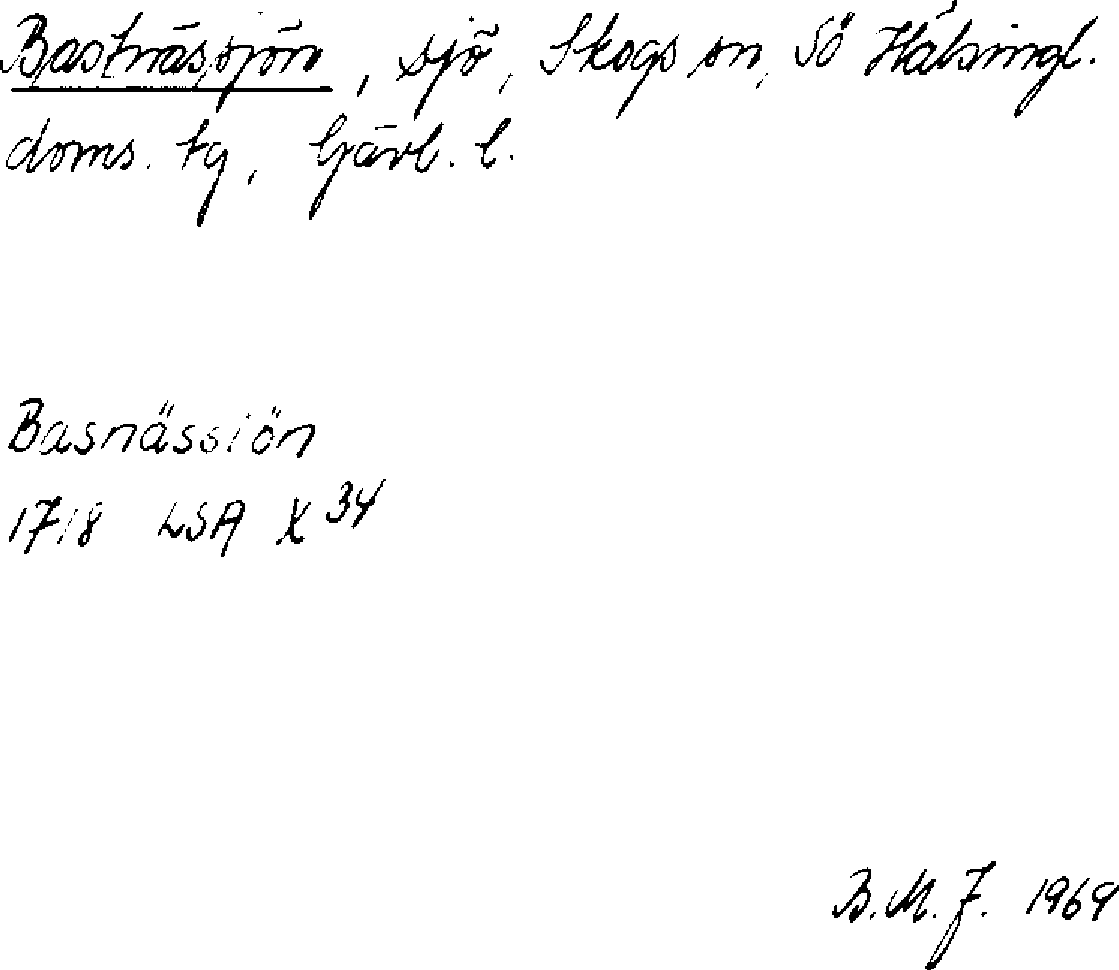 Bastnässjön, sjö, Skogs sn, Sö Hälsingl.
doms. tg, Gävl. l.
Basnässiön
1718 LSA X 34
B.M.J. 1969